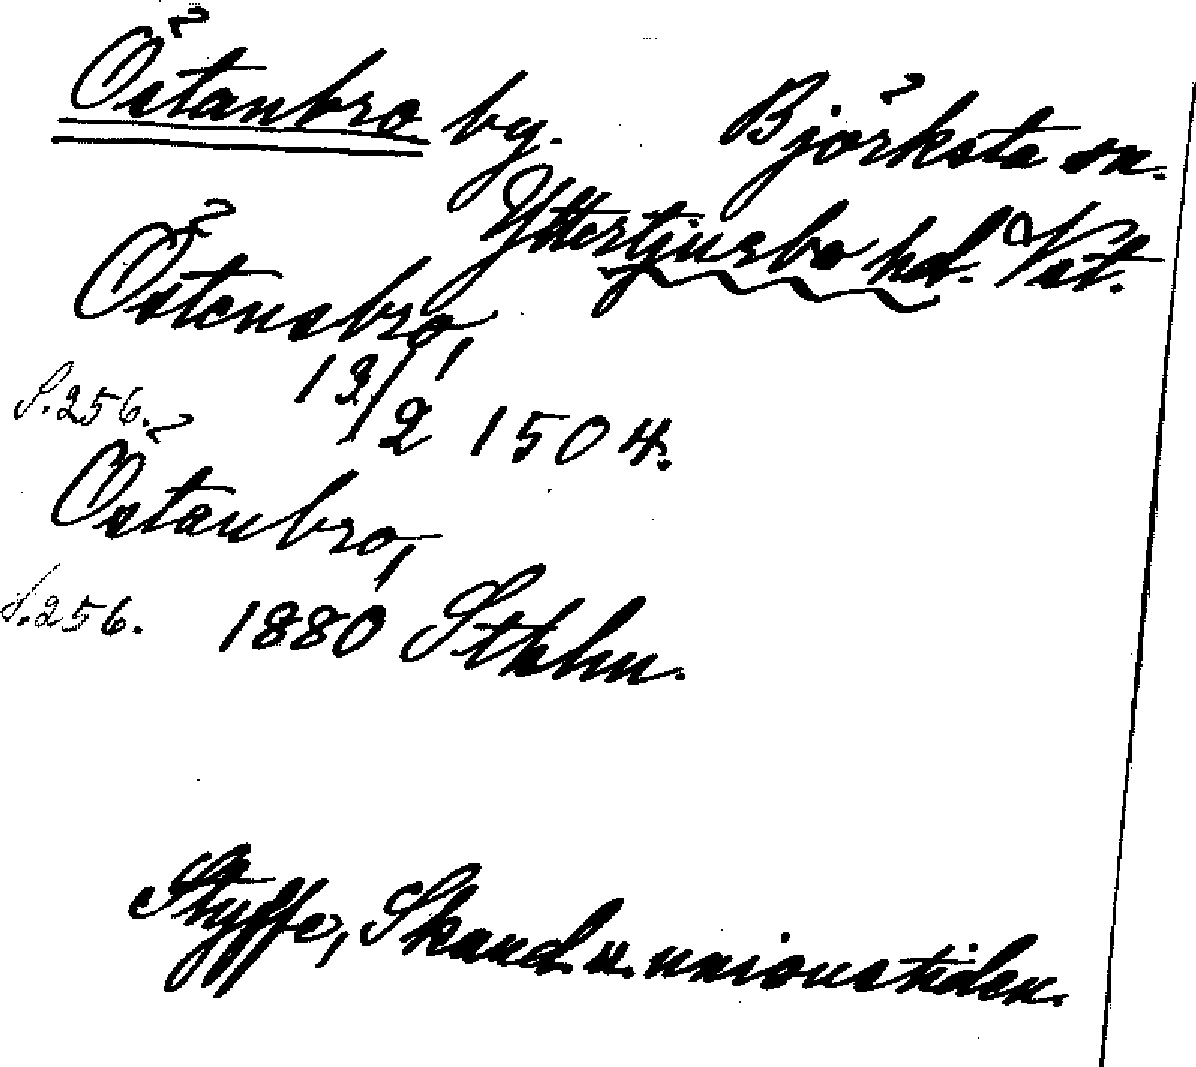 Östanbro by. Björksta sn.
Yttertjurbo hd. Vst.
Östensbro,
S. 256. 13/2 1504.
Östanbro,
S. 256. 1880 Stkhm.
Styffe, Skand. u. unionstiden.